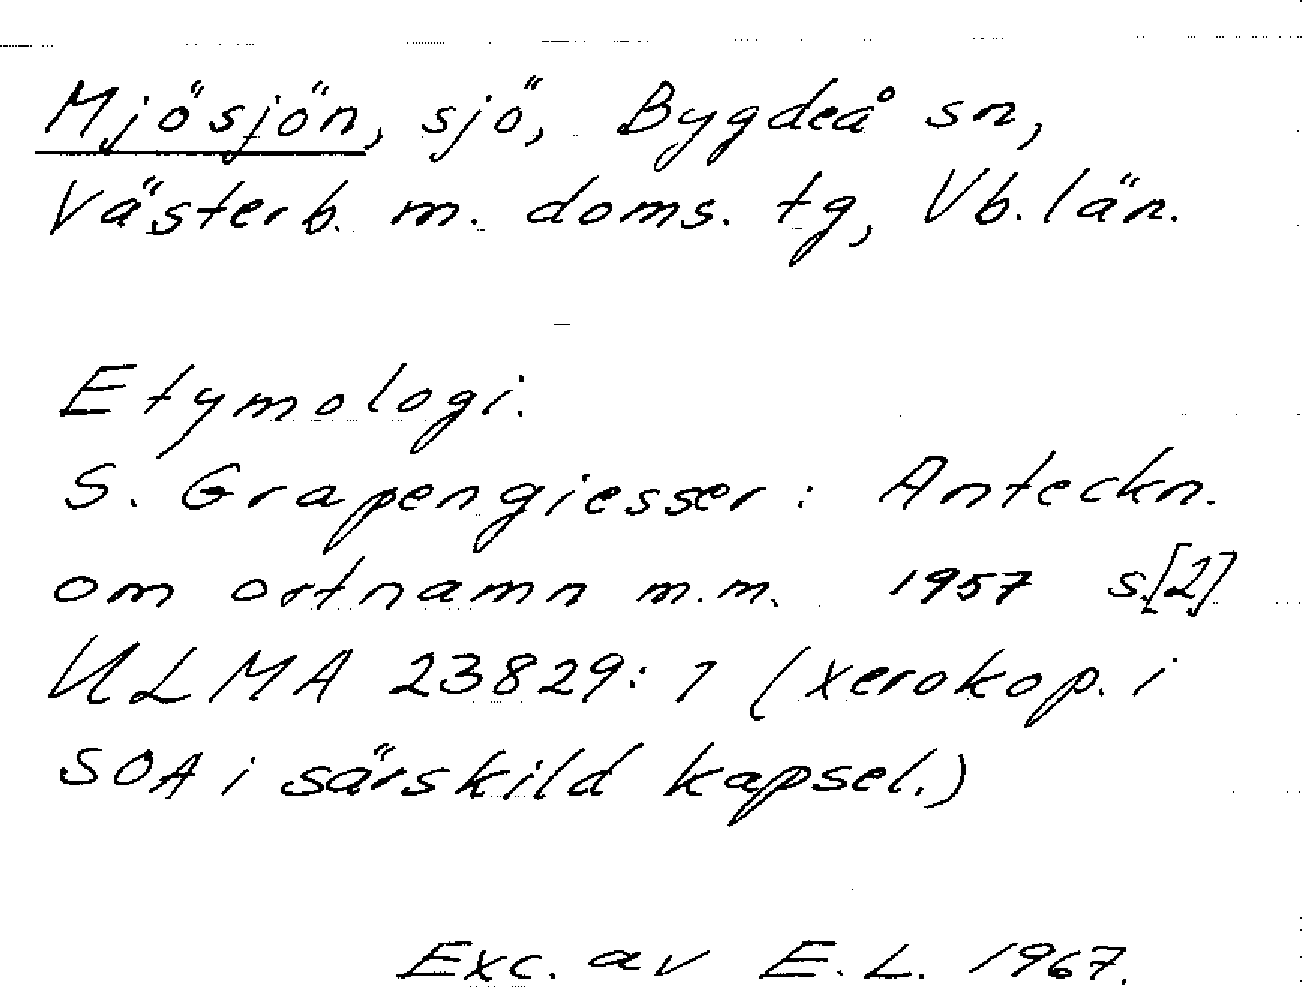 Mjösjön, sjö, Bygdeå sn,
Västerb. m. doms. tg, Vb. län.
Etymologi.
S. Grapengiesser: Anteckn.
om ortnamn m.m. 1957 s.[2]
ULMA 23829:1 (xerokop. i
SOA i särskild kapsel.)
Exc. av E.L. 1967.